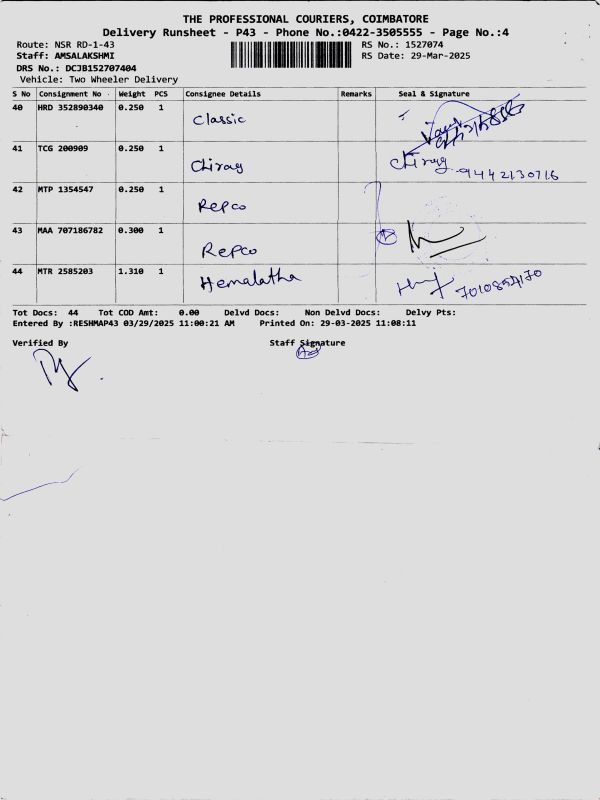 THE PROFESSIONAL COURIERS, COIMBATORE
Delivery Runsheet - P43 - Phone No.:0422-3505555 - Page No.:4
Route: NSR RD-1-43 RS No.: 1527074
Staff: AMSALAKSHMI RS Date: 29-Mar-2025
DRS No.: DCJB152707404
Vehicle: Two Wheeler Delivery
S No Consignment No Weight PCS Consignee Details Remarks Seal & Signature
40 HRD 352890340 0.250 1 Classic
41 TCG 200909 0.250 1 Chirag Chirag 9442130716
42 MTP 1354547 0.250 1 Repco
43 MAA 707186782 0.300 1 Repco
44 MTR 2585203 1.310 1 Hemalatha
Tot Docs: 44 Tot COD Amt: 0.00 Delvd Docs: Non Delvd Docs: Delvy Pts:
Entered By :RESHMAP43 03/29/2025 11:00:21 AM Printed On: 29-03-2025 11:08:11
Verified By Staff Signature